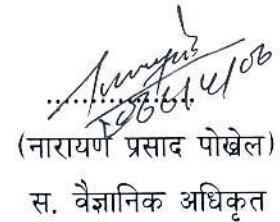 (नारायण प्रसाद पोखेल)
स. वैज्ञानिक अधिकृत